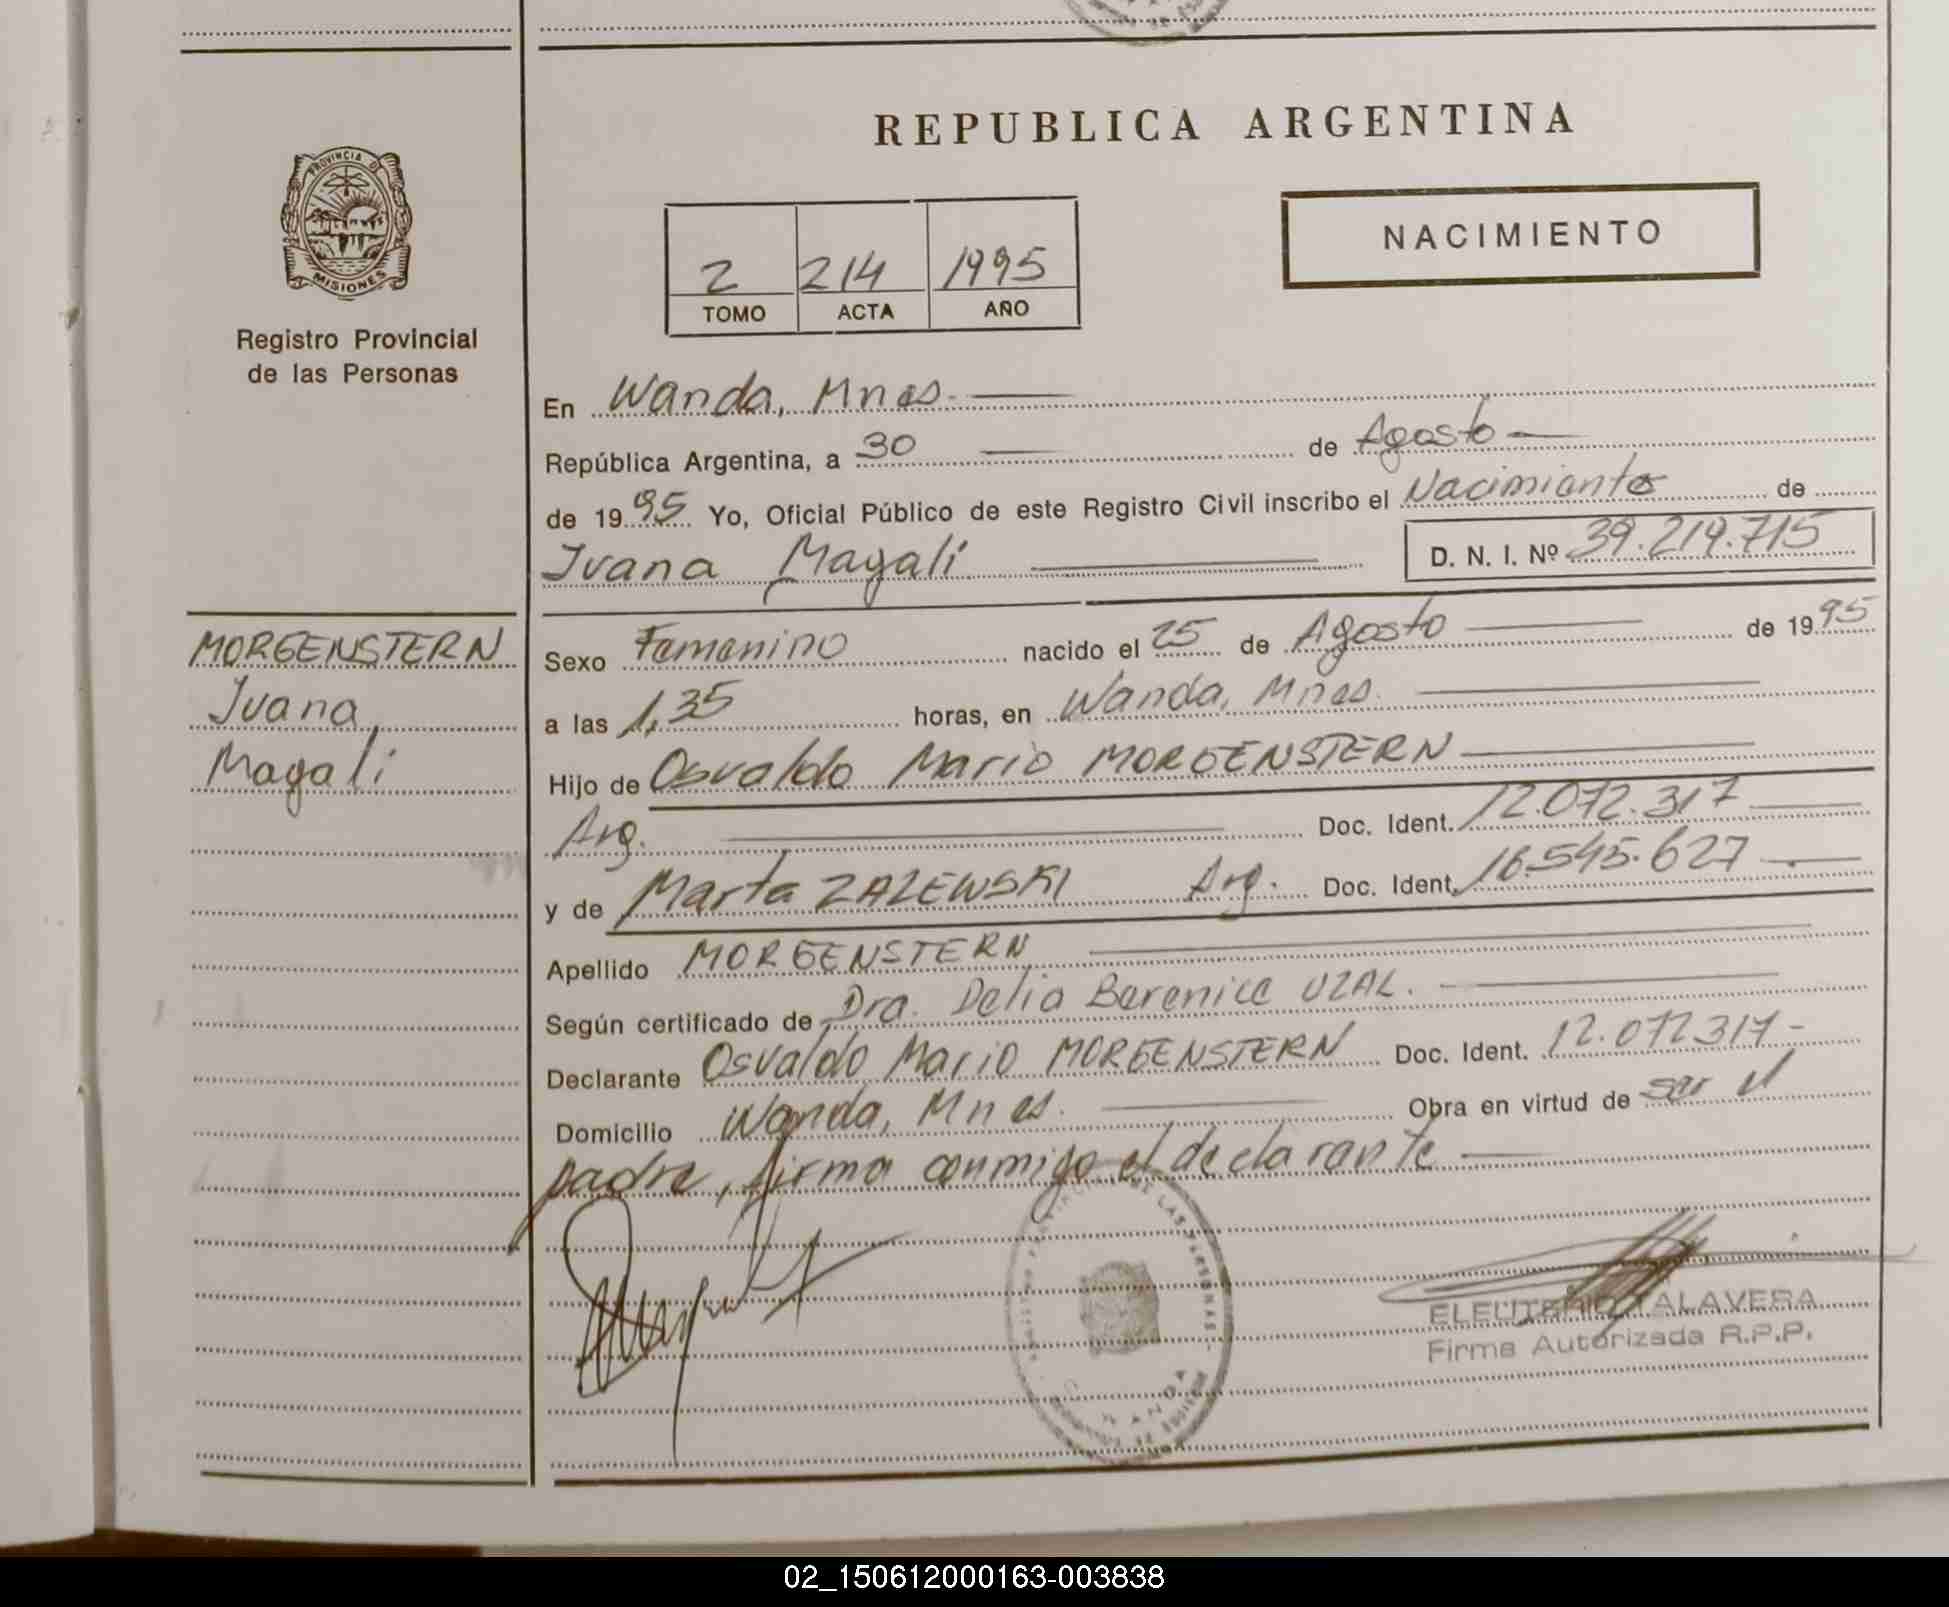 REPUBLICA ARGENTINA
PROVINCIA DE
MISIONES
Registro Provincial
de las Personas
NACIMIENTO
2 214 1995
TOMO ACTA AÑO
En Wanda, Mnes.
República Argentina, a 30 de Agosto
de 1995 Yo, Oficial Público de este Registro Civil inscribo el Nacimiento de
Ivana Magalí D. N. I. Nº 39.219.715
MORGENSTERN
Ivana
Magalí
Sexo Femenino nacido el 25 de Agosto de 1995
a las 1,35 horas, en Wanda, Mnes.
Hijo de Osvaldo Mario MORGENSTERN
Arg. Doc. Ident. 12.072.317
y de Marta ZALEWSKI Arg. Doc. Ident. 16.545.627
Apellido MORGENSTERN
Según certificado de Dra. Delia Berenice UZAL.
Declarante Osvaldo Mario MORGENSTERN Doc. Ident. 12.072317-
Domicilio Wanda, Mnes. Obra en virtud de ser el
padre, firma conmigo el declarante
DE LAS PERSONAS
WANDA
ELEUTERIO TALAVERA
Firma Autorizada R.P.P.
02_150612000163-003838